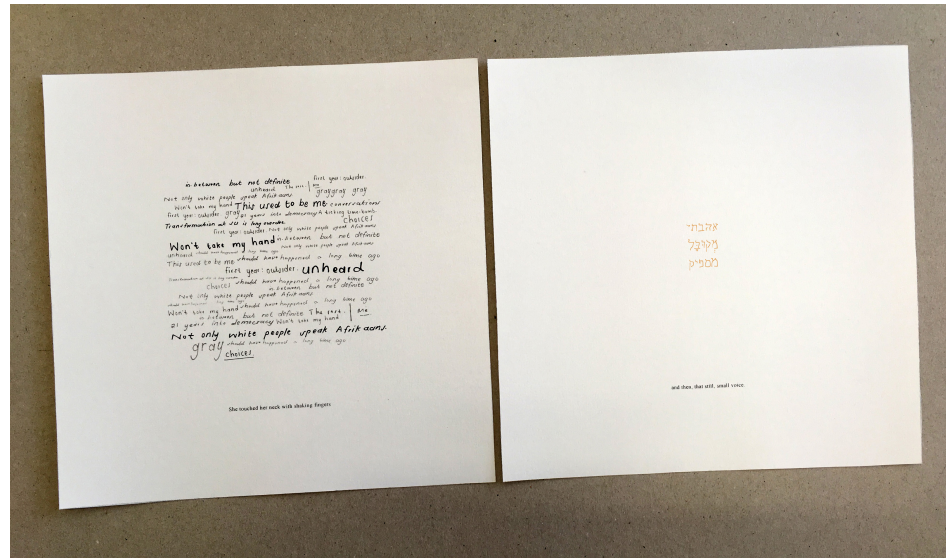 in between but not definite
first year: outsider.
unheard The rest. | me
Not only white people speak Afrikaans
graygray gray
Won't take my hand This used to be me conversations
first year: outsider. gray 21 years into democracy A ticking time-bomb.
Transformation at US is long overdue
choices
first year: outsider. Not only white people speak Afrikaans
Won't take my hand in between but not definite
unheard should have happened a long time ago Not only white people speak Afrikaans
This used to be me should have happened a long time ago
first year: outsider. unheard
choices should have happened a long time ago
in between but not definite
Not only white people speak Afrikaans.
Won't take my hand should have happened a long time ago
in between but not definite The rest. | me
21 years into democracy Won't take my hand
Not only white people speak Afrikaans.
gray should have happened a long time ago
choices.
She touched her neck with shaking fingers
אהבתי
מקובל
מספיק
and then, that still, small voice.